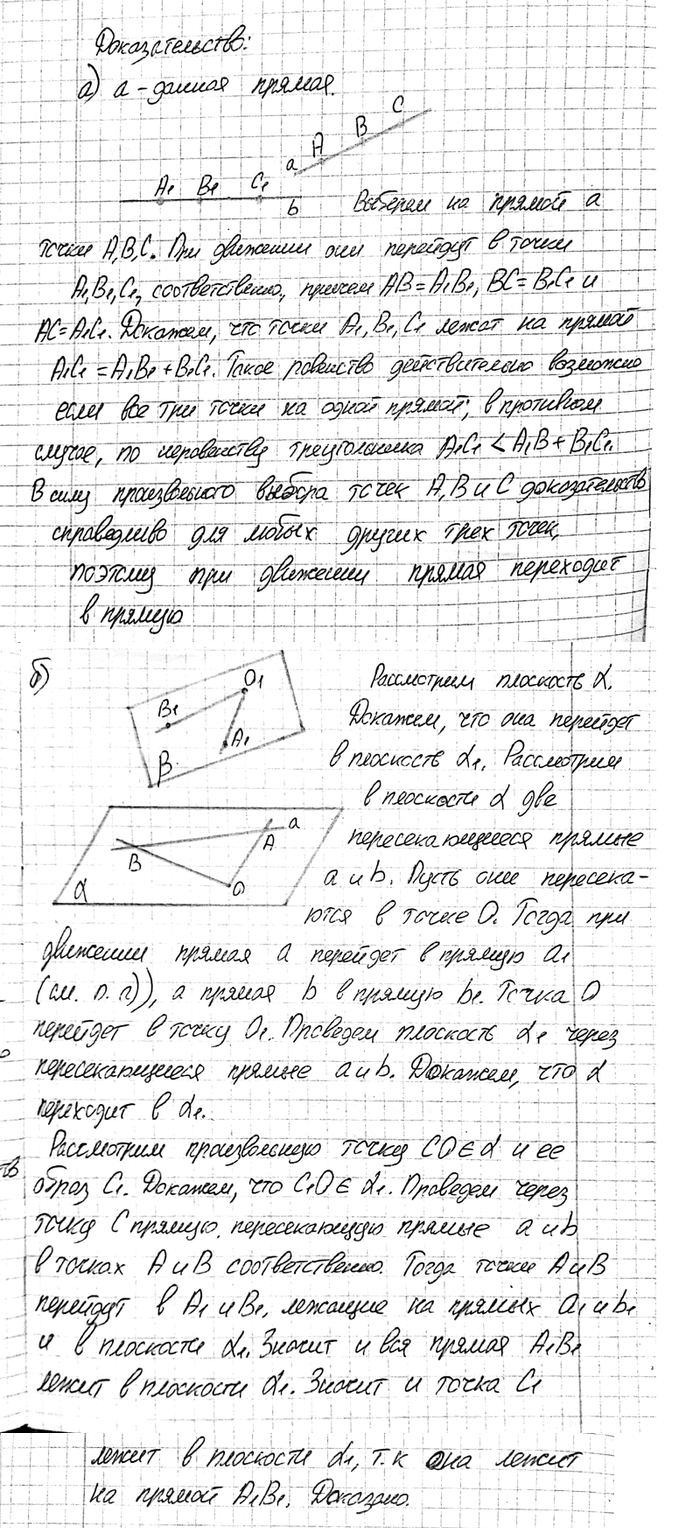 Доказательство:
а) a - данная прямая.
A₁ B₁ C₁ b a A B C
Выберем на прямой a
точки A, B, C. При движении они перейдут в точки
A₁, B₁, C₁, соответственно, причем AB = A₁B₁, BC = B₁C₁ и
AC = A₁C₁. Докажем, что точки A₁, B₁, C₁ лежат на прямой
A₁C₁ = A₁B₁ + B₁C₁. Такое равенство действительно возможно
если все три точки на одной прямой; в противном
случае, по неравенству треугольника A₁C₁ < A₁B + B₁C₁.
В силу произвольного выбора точек A, B и C доказательств
справедливо для любых других трех точек,
поэтому при движении прямая переходит
в прямую
б)
B₁ O₁ A₁ β
B A a O α
Рассмотрим плоскость α.
Докажем, что она перейдет
в плоскость α₁. Рассмотрим
в плоскости α две
пересекающиеся прямые
a и b. Пусть они пересека-
ются в точке O. Тогда при
движении прямая a перейдет в прямую a₁
(см. п. а)), а прямая b в прямую b₁. Точка O
перейдет в точку O₁. Проведем плоскость α₁ через
пересекающиеся прямые a и b. Докажем, что α
переходит в α₁.
Рассмотрим произвольную точку CO ∈ α и ее
образ C₁. Докажем, что C₁O ∈ α₁. Проведем через
точку C прямую, пересекающую прямые a и b
в точках A и B соответственно. Тогда точки A и B
перейдут в A₁ и B₁, лежащие на прямых a₁ и b₁
и в плоскости α₁. Значит и вся прямая A₁B₁
лежит в плоскости α₁. Значит и точка C₁
лежит в плоскости α₁, т.к она лежит
на прямой A₁B₁. Доказано.